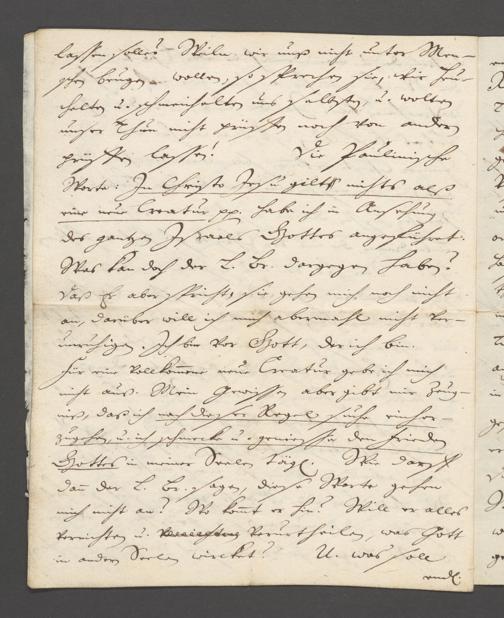 lassen sollen. Weiln wir uns nicht unter Men-
schen beugen wollen, so sprechen sie, wir heu-
chelten u. schmeichelten uns selbsten, u. wolten
unser Thun nicht prüffen noch von andern
prüffen lassen! Die Paulinische
Worte: In Christo Jesu gilts nichts alß
eine neue Creatur pp. habe ich in Ansehung
des gantzen Israels Gottes angeführet.
Was kan doch der L. Br. dargegen haben?
Daß Er aber spricht, sie gehen mich noch nicht
an, darüber will ich mich abermahl nicht ver-
unruhigen. Ich bin vor Gott, der ich bin.
Für eine vollkommene neue Creatur gebe ich mich
nicht aus. Mein Gewissen aber gibt mir Zeug-
nis, daß ich nach dieser Regel suche einher-
zugehen, u. ich schmecke u. geniesse den Frieden
Gottes in meiner Seelen tägl. Wie darff
dann der L. Br. sagen, diese Worte gehen
mich nicht an? Wo komt er hin? Will er alles
vernichten u. verurtheilen, was Gott
in andern Seelen wircket? U. was soll
endl.